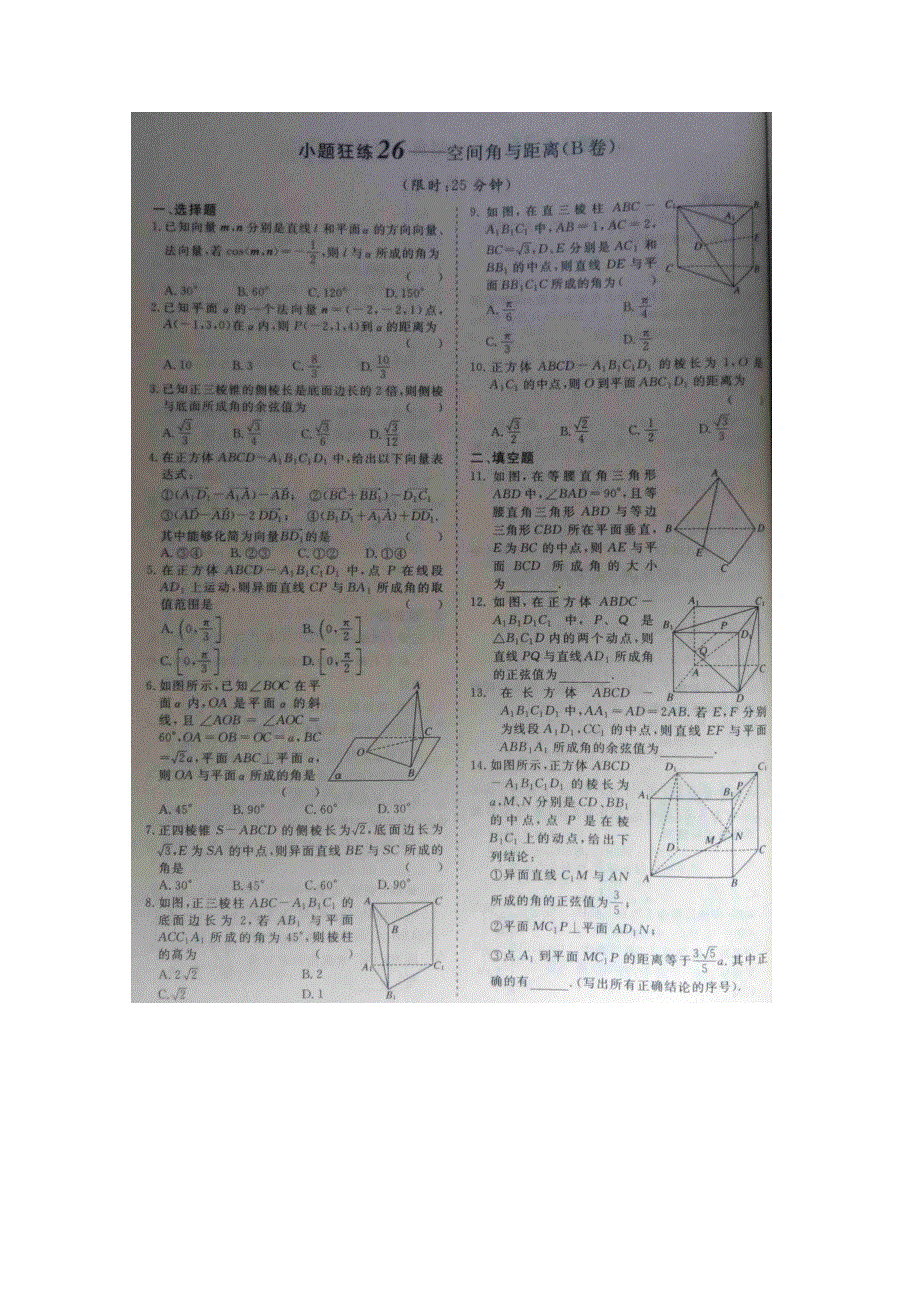 小题狂练26——空间角与距离(B卷)
(限时:25分钟)
一、选择题
1.已知向量m,n分别是直线l和平面α的方向向量、
法向量,若cos<m,n>=-1/2,则l与α所成的角为
( )
A.30° B.60° C.120° D.150°
2.已知平面α的一个法向量n=(-2,-2,1)点,
A(-1,3,0)在α内,则P(-2,1,4)到α的距离为
( )
A.10 B.3 C.8/3 D.10/3
3.已知正三棱锥的侧棱长是底面边长的2倍,则侧棱
与底面所成角的余弦值为 ( )
A.√3/3 B.√3/4 C.√3/6 D.√3/12
4.在正方体ABCD-A₁B₁C₁D₁中,给出以下向量表
达式:
①(A₁D₁-A₁A)-AB; ②(BC+BB₁)-D₁C₁
③(AD-AB)-2 DD₁; ④(B₁D₁+A₁A)+DD₁.
其中能够化简为向量BD₁的是 ( )
A.③④ B.②③ C.①② D.①④
5.在正方体ABCD-A₁B₁C₁D₁中,点P在线段
AD₁上运动,则异面直线CP与BA₁所成角的取
值范围是 ( )
A.(0,π/3] B.(0,π/2]
C.[0,π/3] D.[0,π/2]
6.如图所示,已知∠BOC在平
面α内,OA是平面α的斜
线,且∠AOB=∠AOC=
60°,OA=OB=OC=a,BC
=√2a,平面ABC⊥平面α,
则OA与平面α所成的角是
( )
A.45° B.90° C.60° D.30°
A
C
O
B
α
7.正四棱锥S-ABCD的侧棱长为√2,底面边长为
√3,E为SA的中点,则异面直线BE与SC所成的
角是 ( )
A.30° B.45° C.60° D.90°
8.如图,正三棱柱ABC-A₁B₁C₁的
底面边长为2,若AB₁与平面
ACC₁A₁所成的角为45°,则棱柱
的高为 ( )
A.2√2 B.2
C.√2 D.1
A
C
B
A₁
C₁
B₁
9.如图,在直三棱柱ABC-
A₁B₁C₁中,AB=1,AC=2,
BC=√3,D、E分别是AC₁和
BB₁的中点,则直线DE与平
面BB₁C₁C所成的角为( )
A.π/6 B.π/4
C.π/3 D.π/2
C₁
B₁
A₁
D
E
C
B
A
10.正方体ABCD-A₁B₁C₁D₁的棱长为1,O是
A₁C₁的中点,则O到平面ABC₁D₁的距离为
( )
A.√3/2 B.√2/4 C.1/2 D.√3/3
二、填空题
11.如图,在等腰直角三角形
ABD中,∠BAD=90°,且等
腰直角三角形ABD与等边
三角形CBD所在平面垂直,
E为BC的中点,则AE与平
面BCD所成角的大小
为______.
A
B
D
E
C
12.如图,在正方体ABDC-
A₁B₁D₁C₁中,P、Q是
△B₁C₁D内的两个动点,则
直线PQ与直线AD₁所成角
的正弦值为______.
A₁
C₁
B₁
P
D₁
Q
A
C
B
D
13.在长方体ABCD-
A₁B₁C₁D₁中,AA₁=AD=2AB.若E,F分别
为线段A₁D₁,CC₁的中点,则直线EF与平面
ABB₁A₁所成角的余弦值为______.
14.如图所示,正方体ABCD
-A₁B₁C₁D₁的棱长为
a,M、N分别是CD、BB₁
的中点,点P是在棱
B₁C₁上的动点,给出下
列结论:
①异面直线C₁M与AN
所成的角的正弦值为3/5;
②平面MC₁P⊥平面AD₁N;
③点A₁到平面MC₁P的距离等于3√5/5 a.其中正
确的有______.(写出所有正确结论的序号).
D₁
C₁
A₁
B₁
P
N
M
D
C
A
B